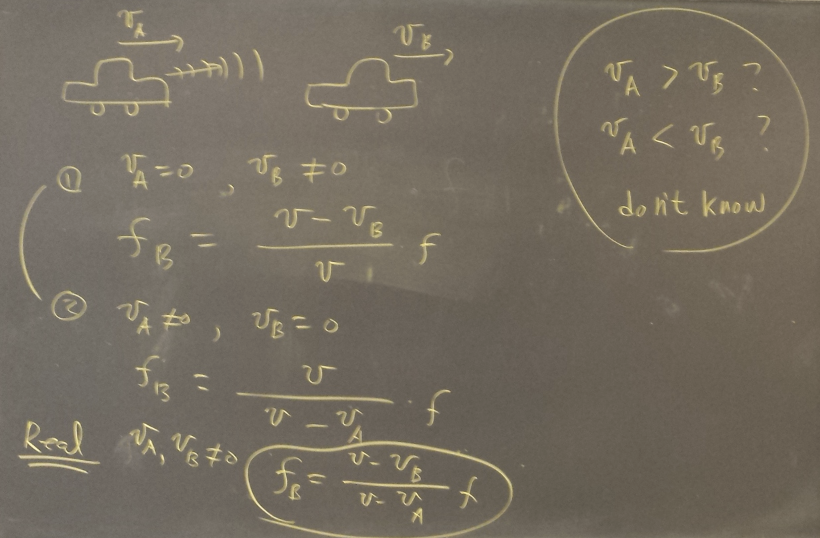 v_A
v_B
① v_A = 0 , v_B ≠ 0
f_B = (v - v_B) / v f
② v_A ≠ 0 , v_B = 0
f_B = v / (v - v_A) · f
Real v_A, v_B ≠ 0 f_B = (v - v_B) / (v - v_A) f
v_A > v_B ?
v_A < v_B ?
don't know